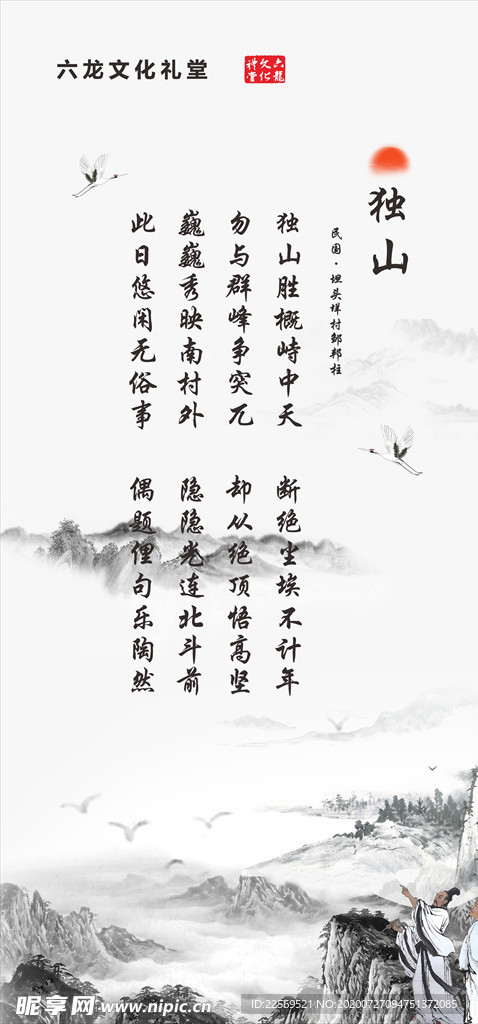 六龙文化礼堂
六龍文化礼堂
独山
民国·坦头垟村邹邦柱
独山胜概峙中天 断绝尘埃不计年
勿与群峰争突兀 却从绝顶悟高坚
巍巍秀映南村外 隐隐光连北斗前
此日悠闲无俗事 偶题俚句乐陶然
昵享网 www.nipic.cn
ID:22569521 NO:20200727094751372085